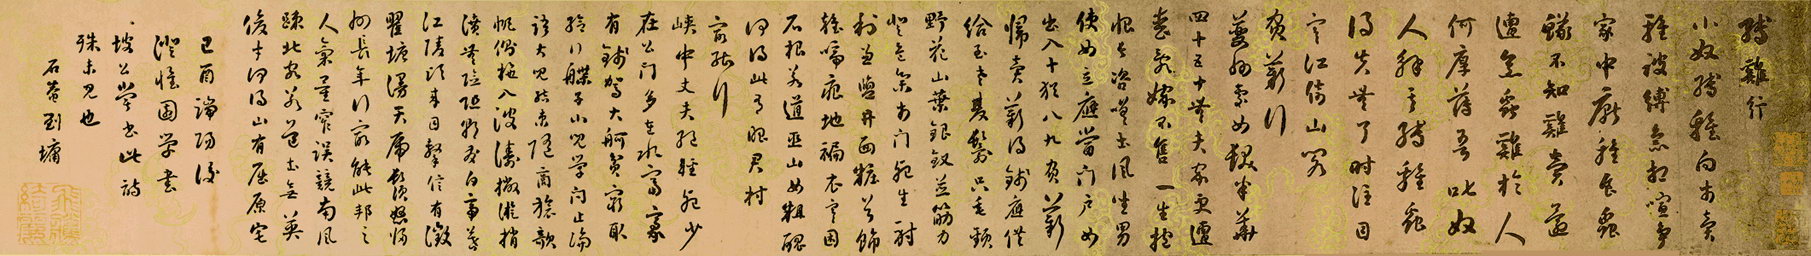 縛雞行
小奴縛雞向市賣
雞被縛急相喧爭
家中厭雞食蟲
蟻不知雞賣還
遭烹蟲雞於人
何厚薄吾叱奴
人解其縛雞蟲
得失無了時注目
寒江倚山閣
負薪行
夔州處女髮半華
四十五十無夫家更遭
喪亂嫁不售一生抱
恨長咨嗟土風坐男
使女立應當門戶女
出入十猶八九負薪
歸賣薪得錢應供
給至老雙鬟只垂頸
野花山葉銀釵並筋力
登危集市門死生射
利兼鹽井面粧首飾
雜啼痕地褊衣寒困
石根若道巫山女粗醜
何得此有昭君村
最能行
峽中丈夫絕輕死少
在公門多在水富豪
有錢駕大舸貧窮取
給行艓子小兒學問止論
語大兒結束隨商旅欹
帆側柂入波濤撇漩捎
濆無險阻朝發白帝暮
江陵頃來目擊信有徵
瞿塘漫天虎鬚怒歸
州長年行最能此邦之
人氣量窄誤競南風
疎北客若道士無英
俊才何得山有屈原宅
己酉端陽後
澄懷園學書
坡公嘗書此詩
殊未見也
石菴劉墉